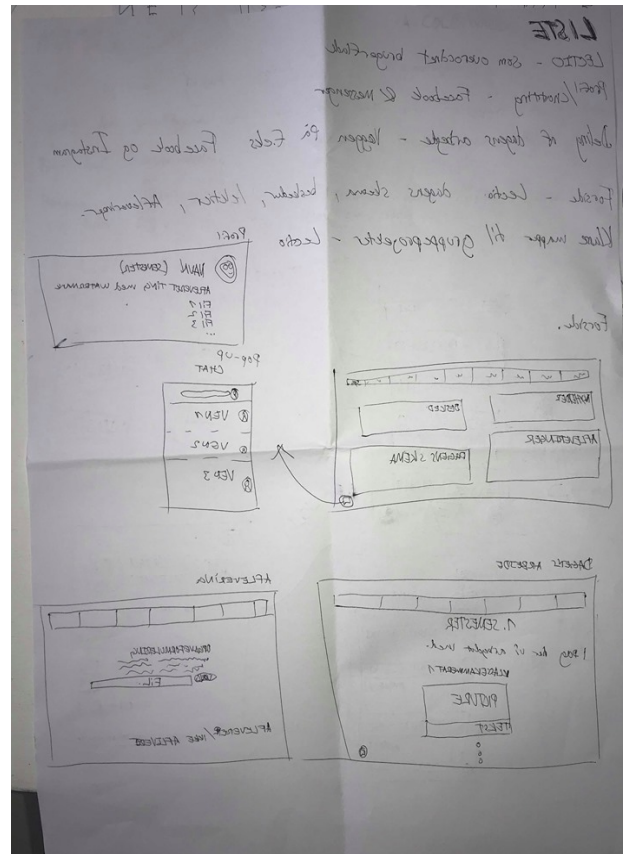 LISTE
LECTIO - som overordnet brugerflade
Profil/chatting - Facebook & Messenger
Deling af dagens arbejde - Væggen på F.eks Facebook og Instagram
Forside - Lectio dagens skema, beskeder, lektier, Afleveringer.
Klare mapper til gruppeprojekter - Lectio
Profil
NAVN (SEMESTER)
AFLEVERET TING med WATERMARK
Fil 1
Fil 2
Fil 3
...
Forside.
NYHEDER
BESKED
AFLEVERINGER
DAGENS SKEMA
POP-UP
CHAT
VEN 1
VEN 2
VEN 3
DAGENS ARBEJDE
1. SEMESTER
I dag har vi arbejdet med.
KLASSEKAMMERAT 1
PICTURE
TEKST
AFLEVERING
OPGAVEFORMULERING
FIL
AFLEVERET/IKKE AFLEVERET